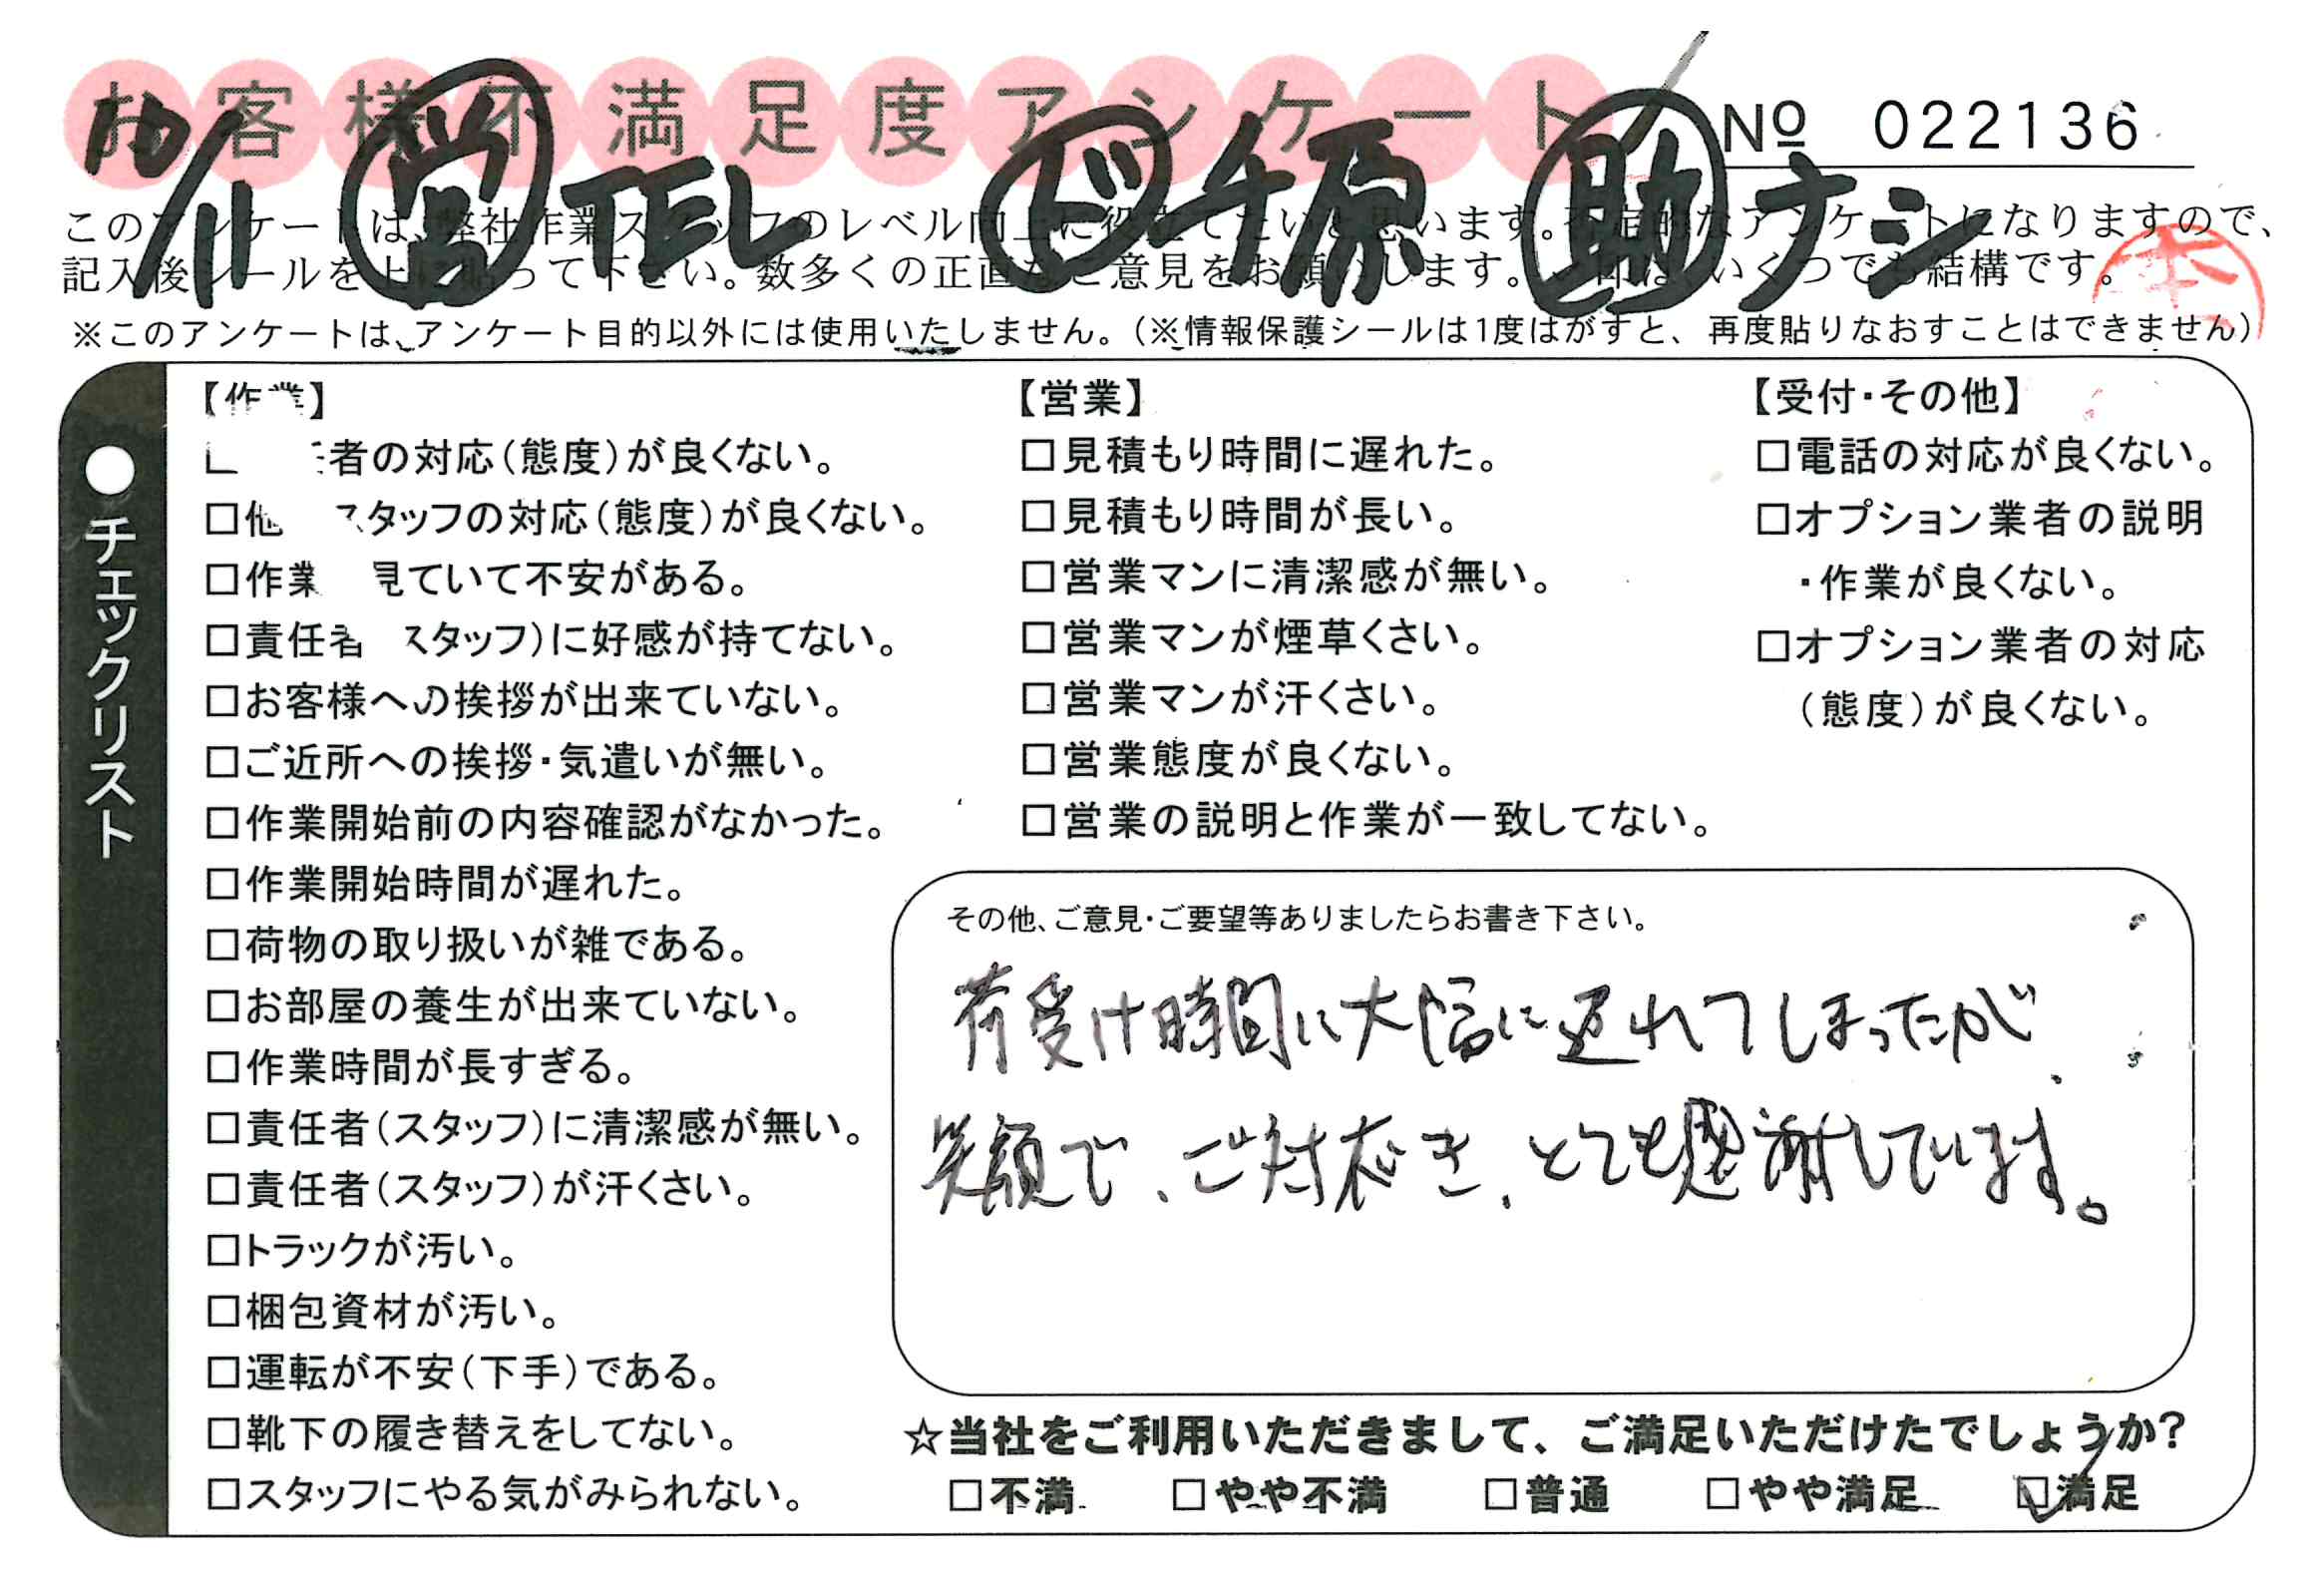 お客様不満足度アンケート
№ 022136
10/11 営 TEL ド 千原 助 ナシ
このアンケートは、弊社作業スタッフのレベル向上に役立てたいと思います。否定的なアンケートになりますので、
記入後シールを上に貼って下さい。数多くの正直なご意見をお願いします。✓印は、いくつでも結構です。
※このアンケートは、アンケート目的以外には使用いたしません。(※情報保護シールは1度はがすと、再度貼りなおすことはできません)
●チェックリスト
【作業】
者の対応(態度)が良くない。
□他 スタッフの対応(態度)が良くない。
□作業 見ていて不安がある。
□責任者 スタッフ)に好感が持てない。
□お客様への挨拶が出来ていない。
□ご近所への挨拶・気遣いが無い。
□作業開始前の内容確認がなかった。
□作業開始時間が遅れた。
□荷物の取り扱いが雑である。
□お部屋の養生が出来ていない。
□作業時間が長すぎる。
□責任者(スタッフ)に清潔感が無い。
□責任者(スタッフ)が汗くさい。
□トラックが汚い。
□梱包資材が汚い。
□運転が不安(下手)である。
□靴下の履き替えをしてない。
□スタッフにやる気がみられない。
【営業】
□見積もり時間に遅れた。
□見積もり時間が長い。
□営業マンに清潔感が無い。
□営業マンが煙草くさい。
□営業マンが汗くさい。
□営業態度が良くない。
□営業の説明と作業が一致してない。
【受付・その他】
□電話の対応が良くない。
□オプション業者の説明
・作業が良くない。
□オプション業者の対応
(態度)が良くない。
その他、ご意見・ご要望等ありましたらお書き下さい。
荷受け時間に大幅に遅れてしまったが、
笑顔で、ご対応き、とても感謝しています。
☆当社をご利用いただきまして、ご満足いただけたでしょうか?
□不満 □やや不満 □普通 □やや満足 ☑満足